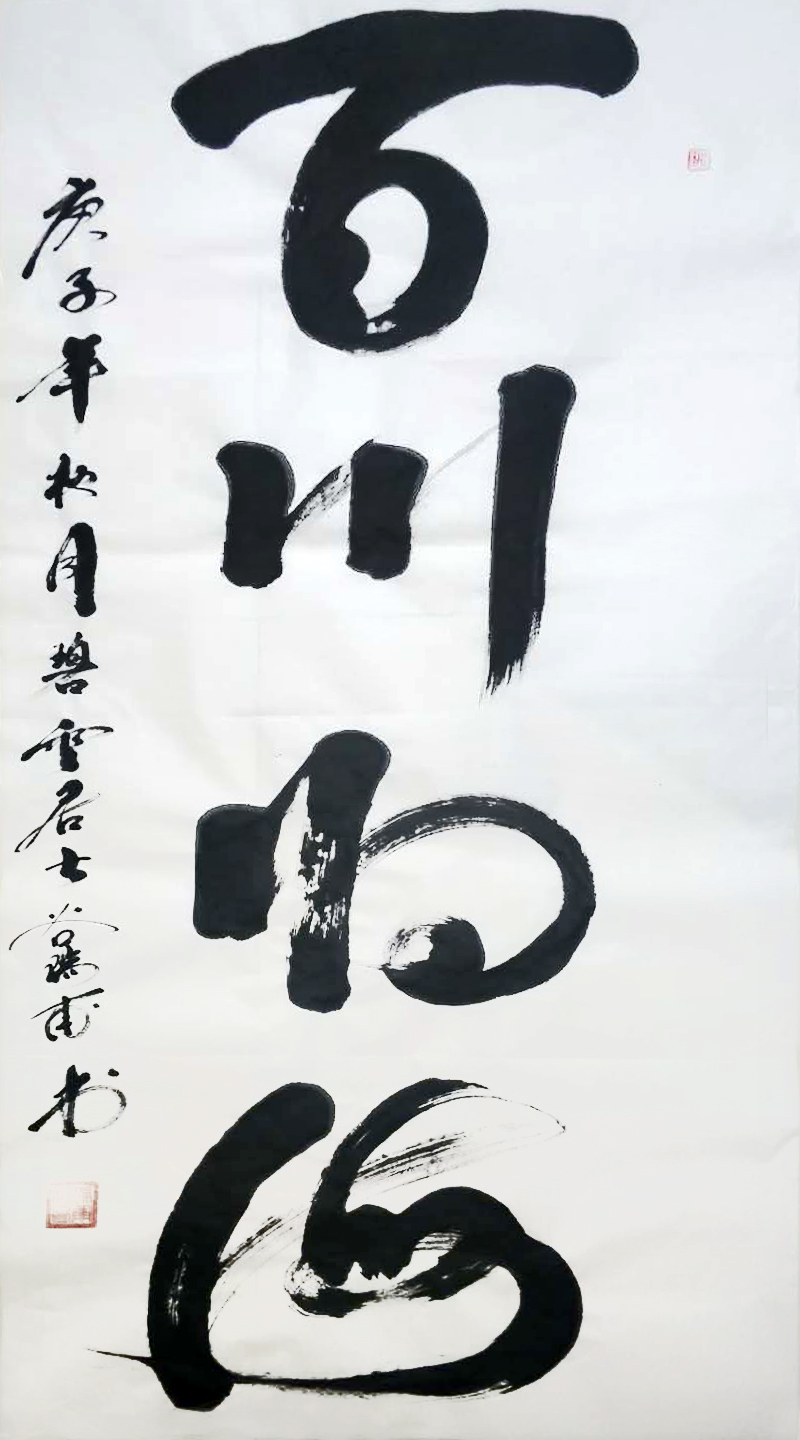 百川归海
庚子年秋月碧云居士 书